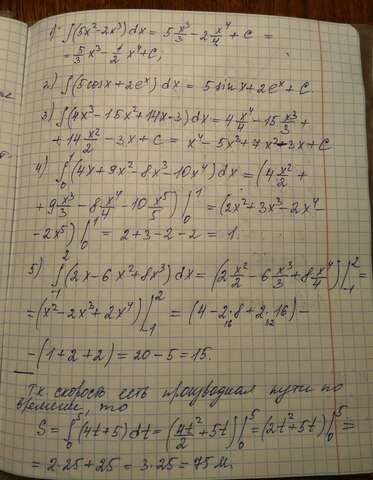 1) ∫(5x²-2x³)dx = 5 x³/3 - 2 x⁴/4 + C =
= 5/3 x³ - 1/2 x⁴ + C;
2) ∫(5cosx + 2eˣ) dx = 5 sin x + 2eˣ + C.
3) ∫(4x³ - 15x² + 14x - 3) dx = 4 x⁴/4 - 15 x³/3 +
+ 14 x²/2 - 3x + C = x⁴ - 5x³ + 7x² - 3x + C
4) ∫₀¹ (4x + 9x² - 8x³ - 10x⁴) dx = (4 x²/2 +
+ 9 x³/3 - 8 x⁴/4 - 10 x⁵/5) |₀¹ = (2x² + 3x³ - 2x⁴ -
- 2x⁵) |₀¹ = 2 + 3 - 2 - 2 = 1.
5) ∫₋₁² (2x - 6x² + 8x³) dx = (2 x²/2 - 6 x³/3 + 8 x⁴/4) |₋₁² =
= (x² - 2x³ + 2x⁴) |₋₁² = (4 - 2·8 + 2·16) -
16 32
- (1 + 2 + 2) = 20 - 5 = 15.
Т.к. скорость есть производная пути по
времени, то
S = ∫₀⁵ (4t + 5) dt = (4t²/2 + 5t) |₀⁵ = (2t² + 5t) |₀⁵ =
= 2·25 + 25 = 3·25 = 75 м.